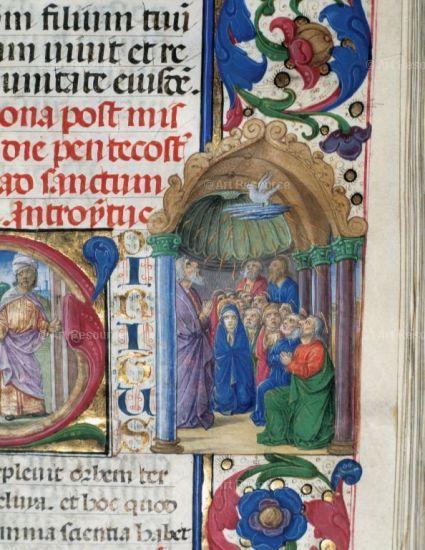 m filium tuū
um uiuit et re
unitate eiusc̄e.
ona post mis
die pentecost̄
ad sanctum
. Introytuc
IRITUS
epleuit orbem ter
eluya. et hoc quod
mnia scientia habet
© Art Resource